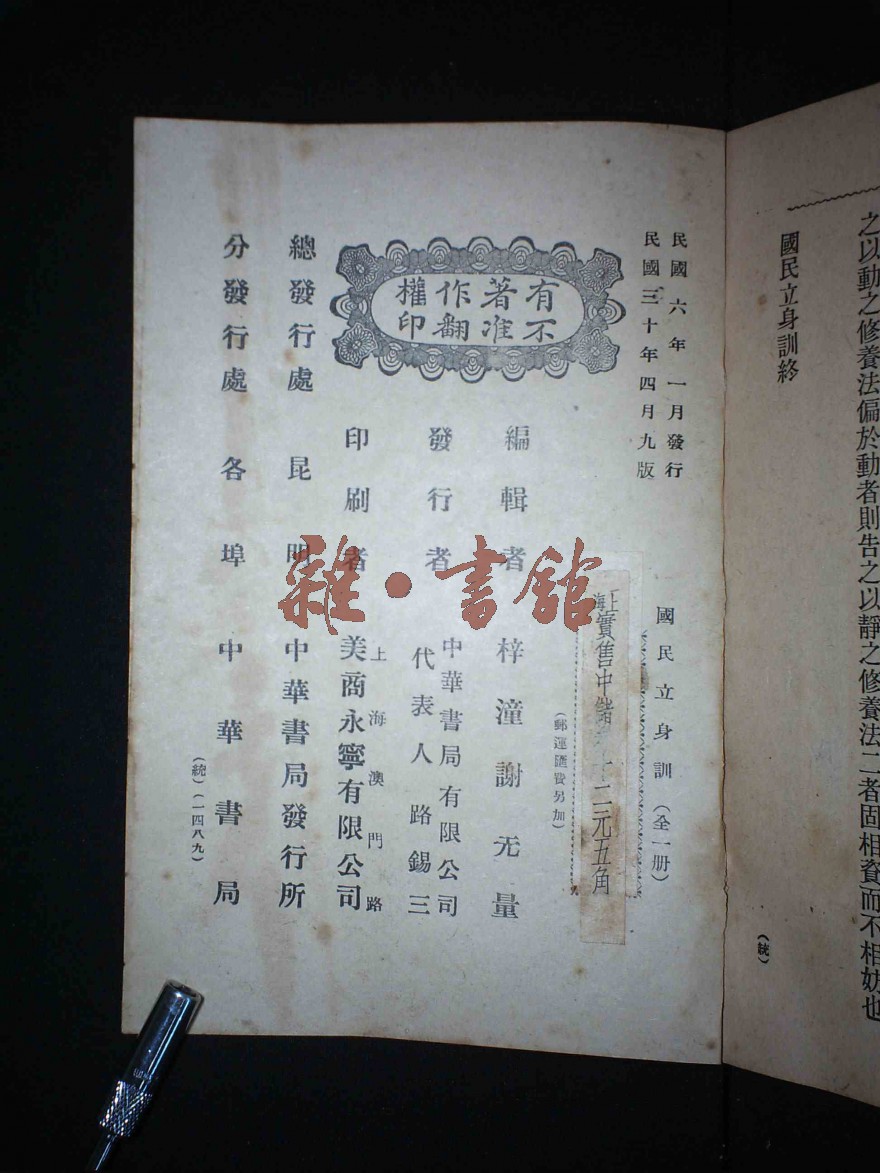 之以動之修養法偏於動者則告之以靜之修養法二者固相資而不相妨也
國民立身訓終
(統)
民國六年一月發行
民國三十年四月九版
國民立身訓(全一册)
上海實售中儲券十二元五角
(郵運匯費另加)
有著作權
不准翻印
編輯者 梓潼謝无量
發行者 中華書局有限公司
代表人路錫三
印刷者 上海澳門路
美商永寧有限公司
總發行處 昆明 中華書局發行所
分發行處 各埠 中華書局
(統)(一四八九)
雜·書館